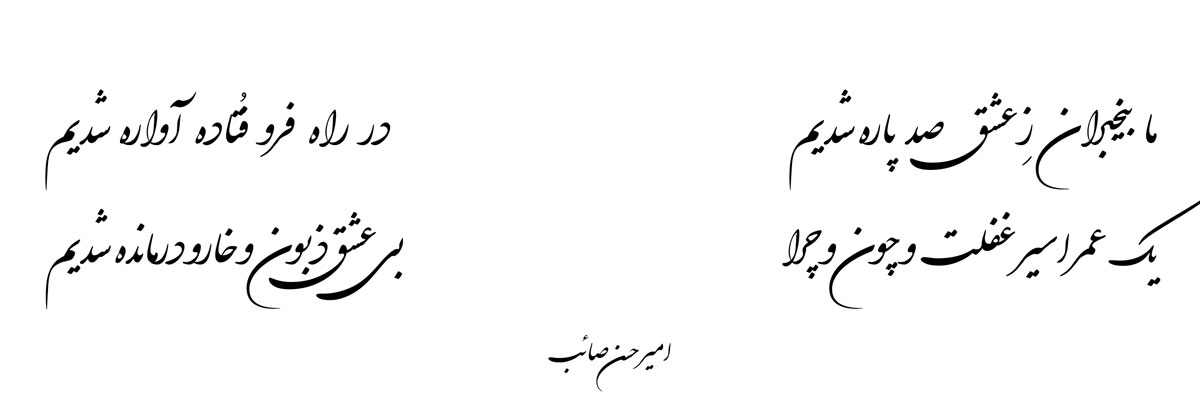 ما بیخبران زِ عشق صد پاره شدیم
در راه فرو فُتاده آواره شدیم
یک عمر اسیر غفلت و چون و چرا
بی عشق ذبون و خار و درمانده شدیم
امیرحسن صائب